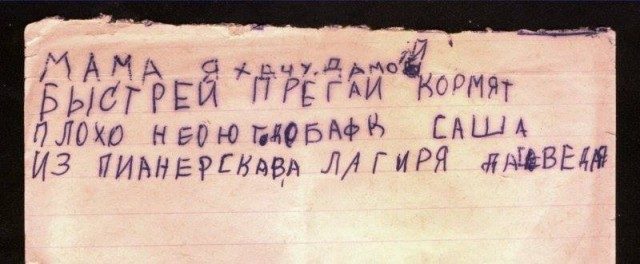 МАМА Я ХЕЧУ ДАМОЙ
БЫСТРЕЙ ПРЕГАЙ КОРМЯТ
ПЛОХО САША
ИЗ ПИАНЕРСКАВА ЛАГИРЯ